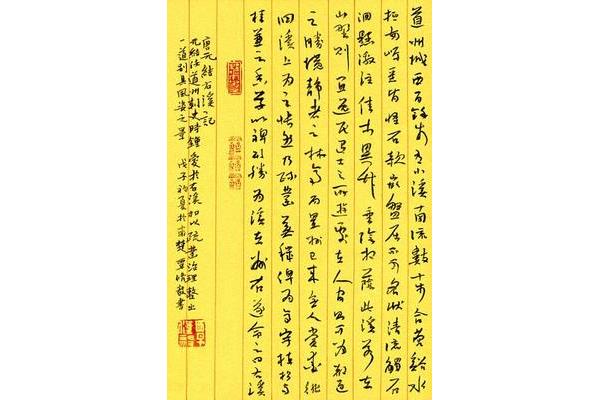 道州城西百餘步有小溪南流數十步合營谿水
抵兩岸悉皆怪石欹嵌盤屈不可名狀清流觸石
洄懸激注佳木異竹垂陰相蔭此溪若在
山野則宜逸民退士之所遊處在人間可為都邑
之勝境靜者之林亭而置州已來無人賞愛徘
徊溪上為之悵然乃疏鑿蕪穢俾為亭宇植松與
桂兼之香草以裨形勝為溪在州右遂命之曰右溪
唐元結右溪記
元結任道州刺史時鍾愛於右溪加以疏鑿治理整出
一道别具風姿之景 戊子初夏於南楚 書